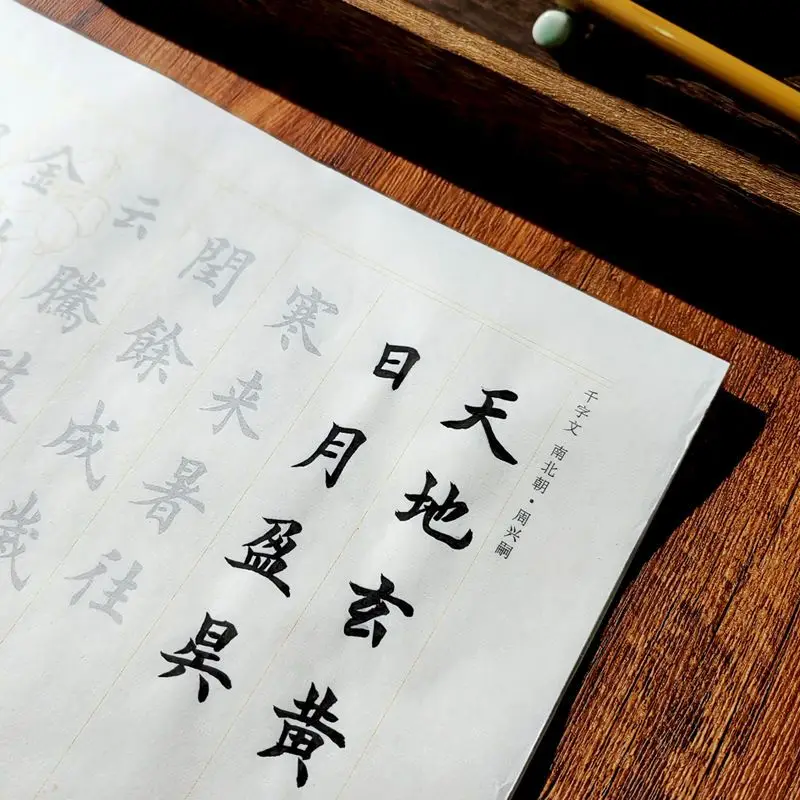 千字文 南北朝·周兴嗣
天地玄黄
日月盈昃
寒来暑往
閏餘成歲
云騰致
金